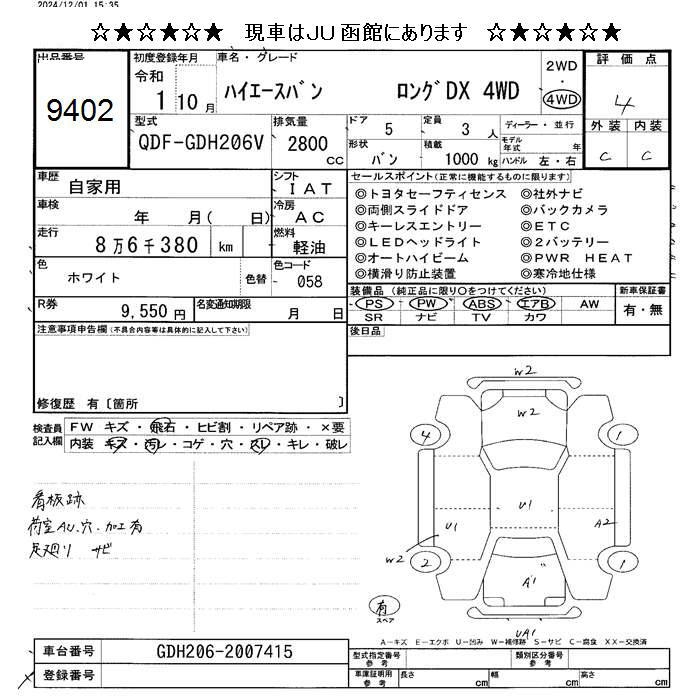 2024/12/01 15:35
☆★☆★☆★ 現車はJU函館にあります ☆★☆★☆★
出品番号
9402
初度登録年月
令和
1 10月
車名・グレード
ハイエースバン ロングDX 4WD
2WD
・
4WD
評価点
4
外装 内装
C C
型式
QDF-GDH206V
排気量
2800
cc
ドア
5
定員
3 人
ディーラー・並行
形状
バン
積載
1000 kg
モデル年式 年
ハンドル 左・右
車歴
自家用
シフト
IAT
車検
年 月( 日)
冷房
AC
走行
8万6千380 km
燃料
軽油
色
ホワイト
色替
色コード
058
R券
9,550円
名変通知期限
月 日
セールスポイント(正常に機能するものに限ります)
◎トヨタセーフティセンス ◎社外ナビ
◎両側スライドドア ◎バックカメラ
◎キーレスエントリー ◎ETC
◎LEDヘッドライト ◎2バッテリー
◎オートハイビーム ◎PWR HEAT
◎横滑り防止装置 ◎寒冷地仕様
装備品(純正品に限り○をつけてください)
PS PW ABS エアB AW
SR ナビ TV カワ
新車保証書
有・無
後日品
注意事項申告欄(不具合内容等は具体的に記入して下さい)
修復歴 有〔箇所 〕
検査員記入欄
FW キズ・飛石・ヒビ割・リペア跡・×要
内装 キズ・汚レ・コゲ・穴・スレ・キレ・破レ
看板跡
荷室AU、穴、加工有
足廻り サビ
W2
W2
4
1
U1
U1
A2
W2
2
1
A1
有
スペア
UA1
A-キズ E-エクボ U-凹み W-補修跡 S-サビ C-腐食 XX-交換済
車台番号
GDH206-2007415
登録番号
型式指定番号
参考
類別区分番号
参考
車庫証明用
参考
長さ cm
幅 cm
高さ cm